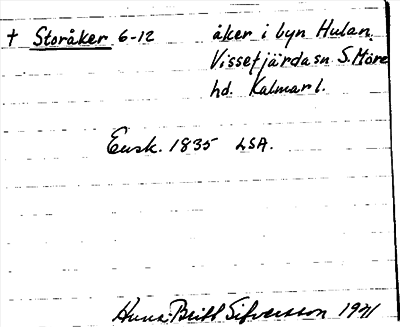 † Storåker 6-12 åker i byn Hulan.
Vissefjärda sn S. Möre
hd. Kalmar l.
Ensk. 1835 LSA.
Britt 1971